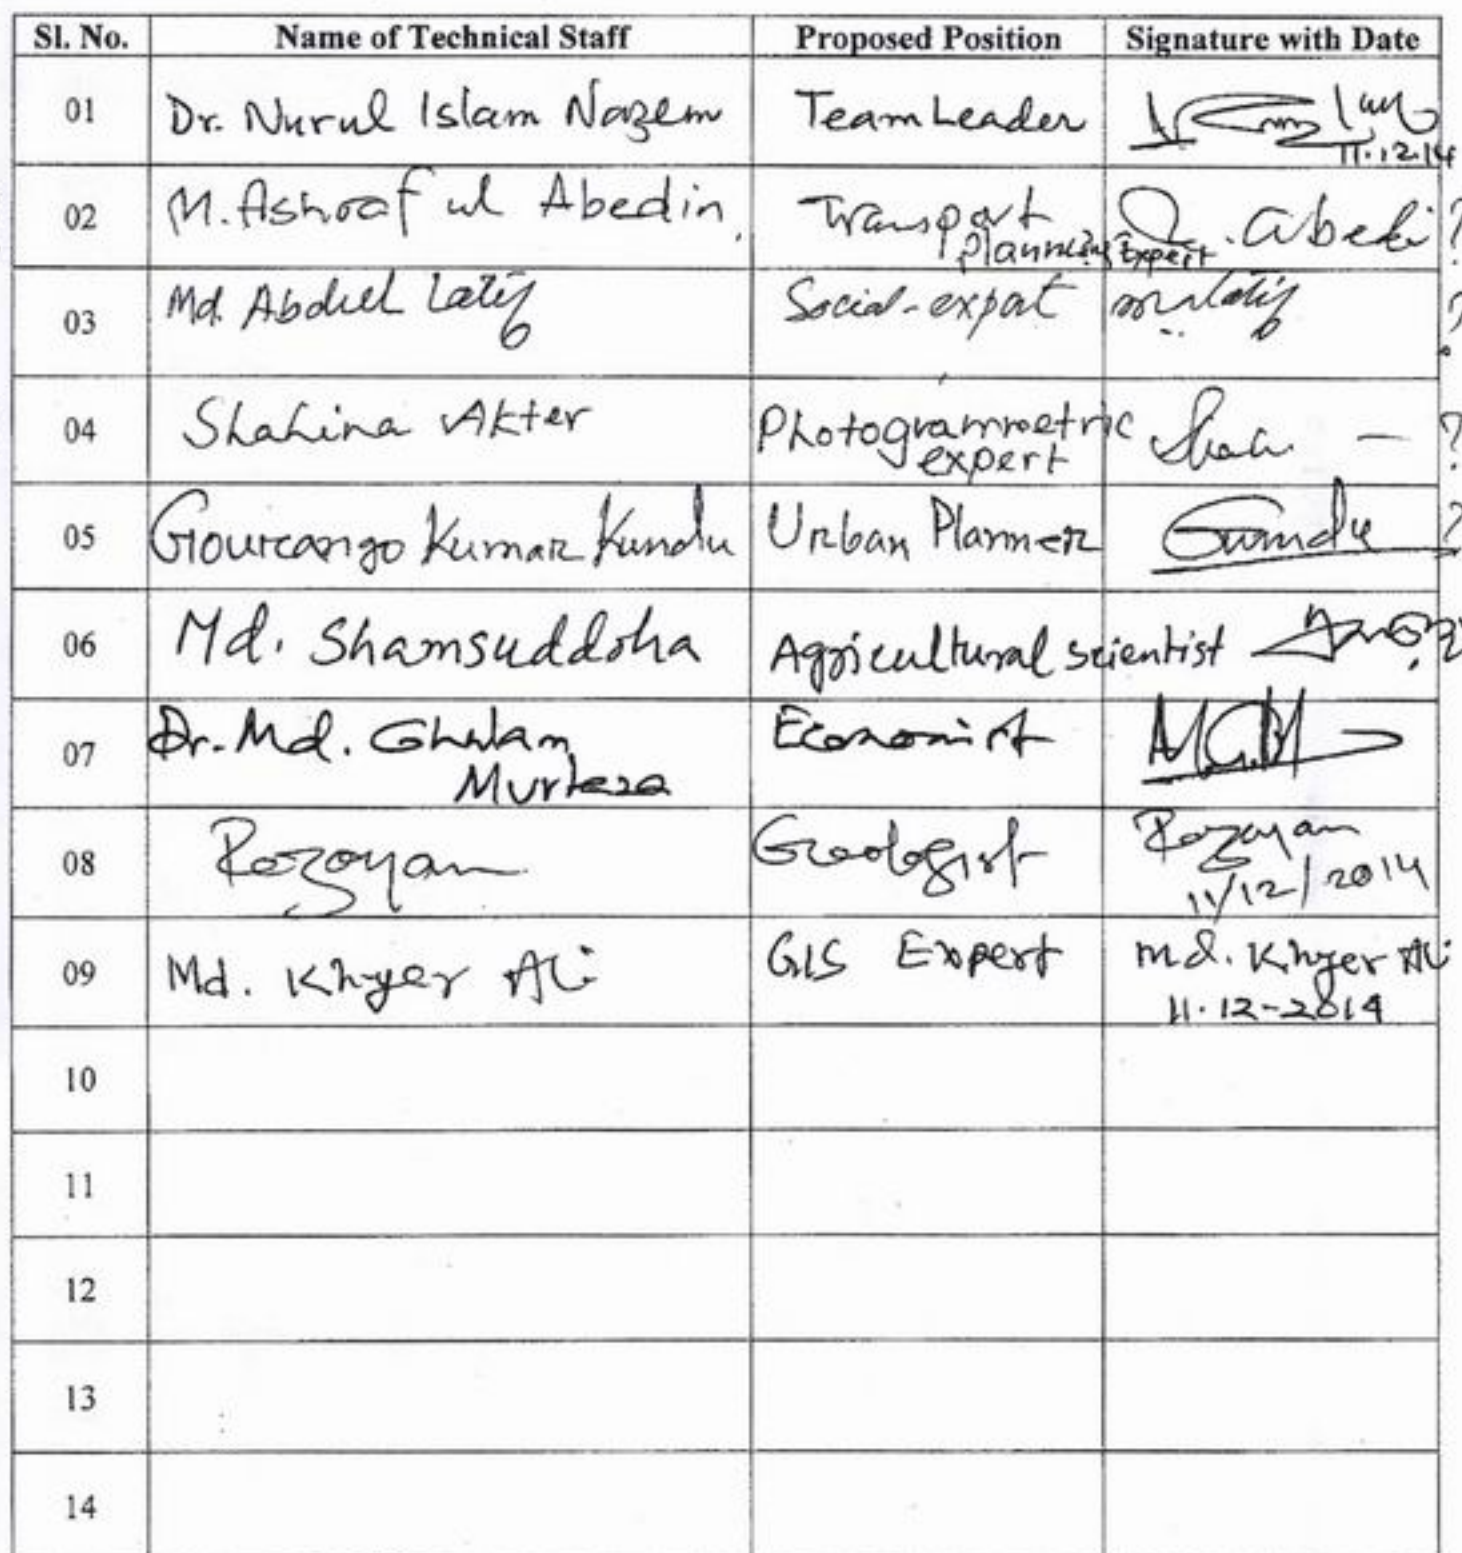 Sl. No. Name of Technical Staff Proposed Position Signature with Date
01 Dr. Nurul Islam Nazem Team Leader
11.12.14
02 M. Ashraf ul Abedin, Transport Abedi ?
Planning Expert
03 Md. Abdul Latif Social-expert Latif ?
04 Shahina Akter Photogrammetric Shah — ?
expert
05 Gourango Kumar Kundu Urban Planner Gkundu ?
06 Md. Shamsuddoha Agricultural scientist ?
07 Dr. Md. Ghulam Economist
Murteza
08 Rezoyan Geologist Rezoyan
11/12/2014
09 Md. Khyer Ali GIS Expert Md. Khyer Ali
11.12-2014
10
11
12
13
14